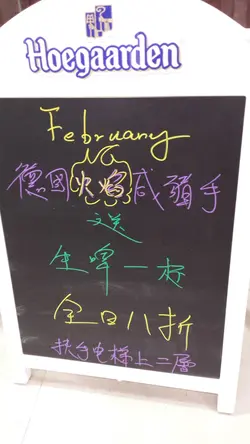 Hoegaarden
February
德國火焰咸豬手
送
生啤一杯
全日八折
扶手电梯上二層